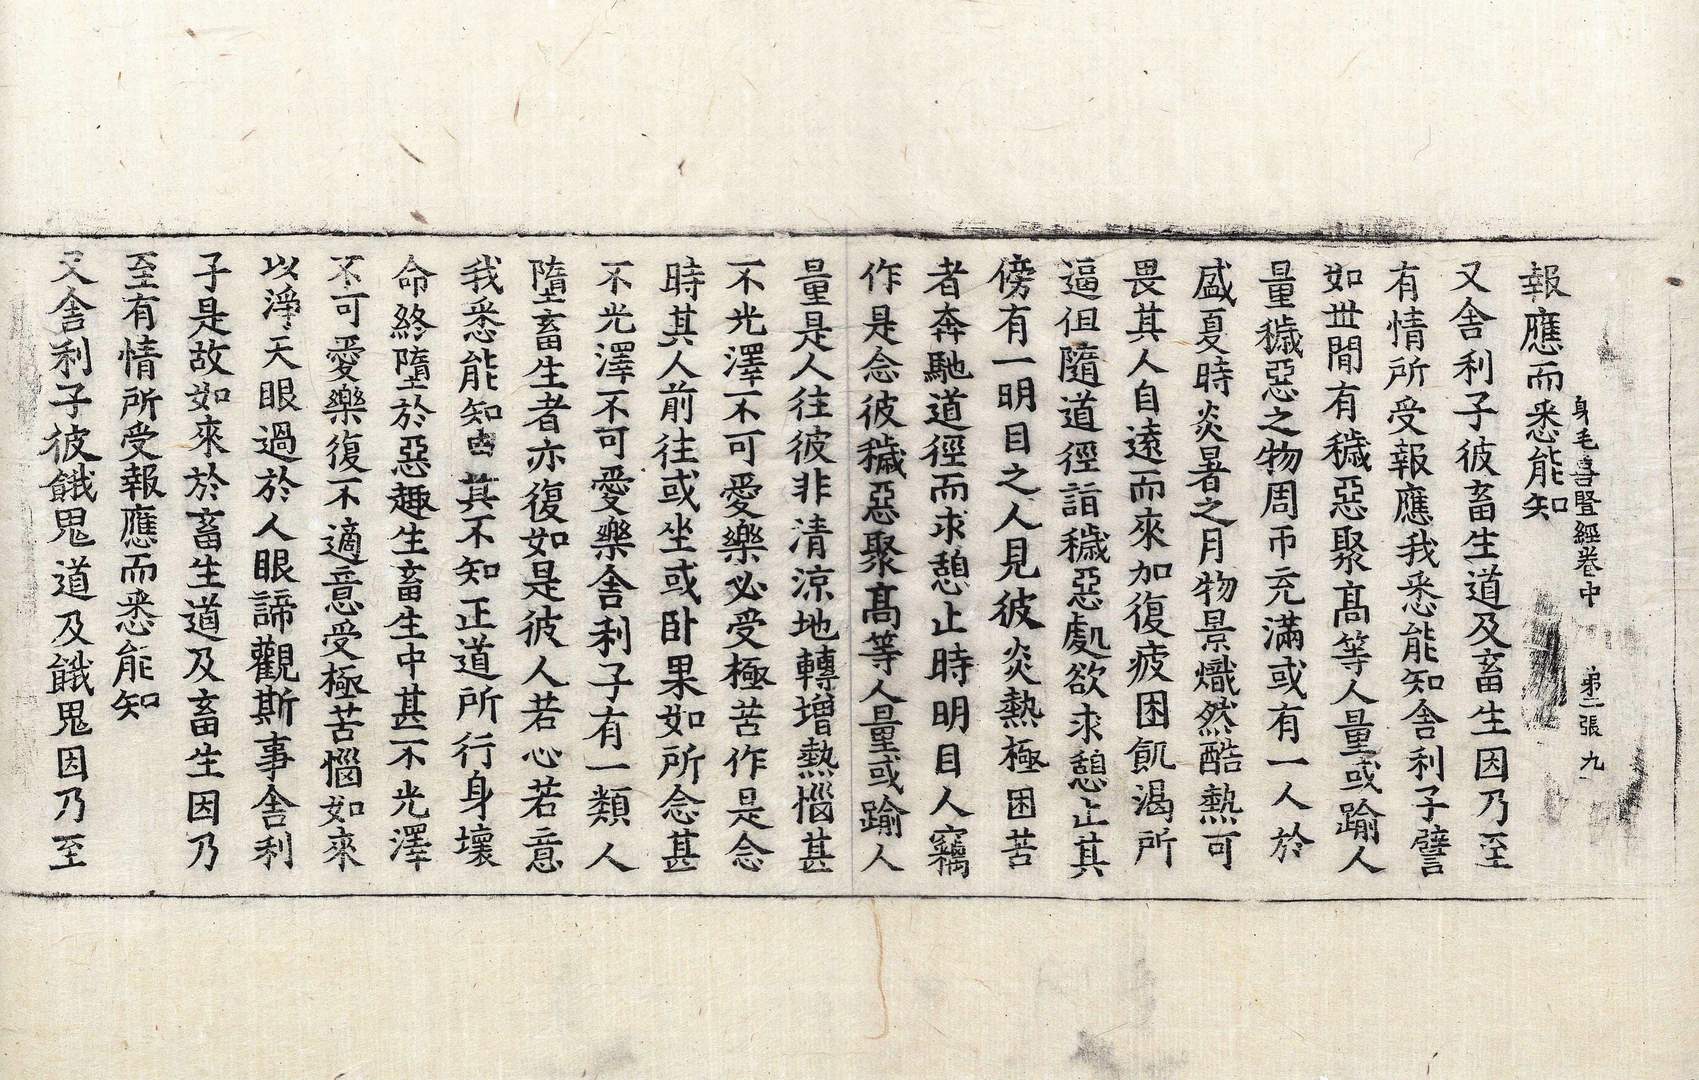 身毛喜竪經卷中 第二張 九
報應而悉能知
又舍利子彼畜生道及畜生因乃至
有情所受報應我悉能知舍利子譬
如世閒有穢惡聚髙等人量或踰人
量穢惡之物周帀充滿或有一人於
盛夏時炎暑之月物景熾然酷熱可
畏其人自遠而來加復疲困飢渴所
逼但隨道徑詣穢惡處欲求憩止其
傍有一明目之人見彼炎熱極困苦
者奔馳道徑而求憩止時明目人竊
作是念彼穢惡聚髙等人量或踰人
量是人往彼非清涼地轉增熱惱甚
不光澤不可愛樂必受極苦作是念
時其人前往或坐或卧果如所念甚
不光澤不可愛樂舍利子有一類人
墮畜生者亦復如是彼人若心若意
我悉能知由其不知正道所行身壞
命終墮於惡趣生畜生中甚不光澤
不可愛樂復不適意受極苦惱如來
以淨天眼過於人眼諦觀斯事舍利
子是故如來於畜生道及畜生因乃
至有情所受報應而悉能知
又舍利子彼餓鬼道及餓鬼因乃至